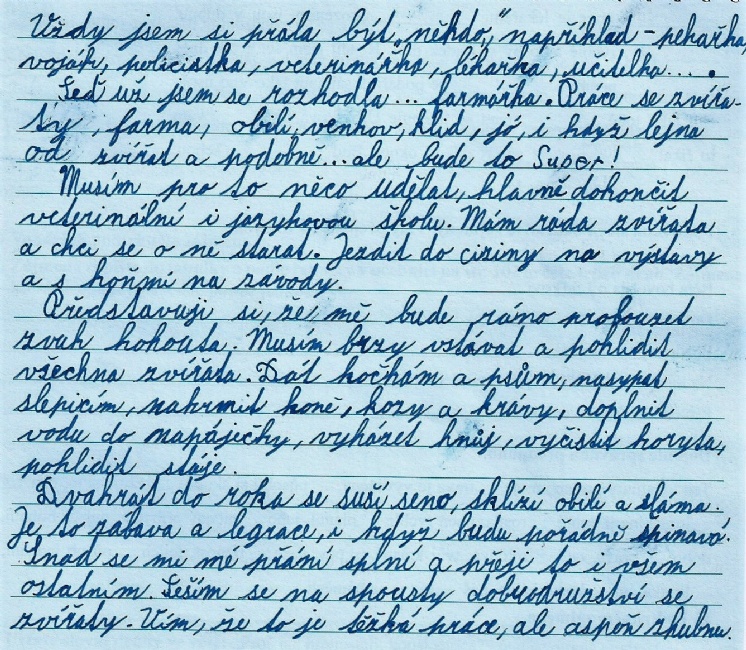 Vždy jsem si přála být „někdo," například - pekařka,
voják, policistka, veterinářka, lékařka, učitelka... .
Teď už jsem se rozhodla... farmářka. Práce se zvířa-
ty, farma, obilí, venkov, klid, jó, i když lejna
od zvířat a podobně...ale bude to Super!
Musím pro to něco udělat, hlavně dokončit
veterinální i jazykovou školu. Mám ráda zvířata
a chci se o ně starat. Jezdit do ciziny na výstavy
a s koňmi na závody.
Představuji si, že mě bude ráno probouzet
zvuk kohouta. Musím brzy vstávat a pohlidit
všechna zvířata. Dát kočkám a psům, nasypat
slepicím, nakrmit koně, kozy a krávy, doplnit
vodu do napáječky, vyházet hnůj, vyčistit koryta,
pohlidit stáje.
Dvakrát do roka se suší seno, sklízí obilí a sláma.
Je to zábava a legrace, i když budu pořádně špinavá.
Snad se mi mé přání splní a přeji to i všem
ostatním. Těším se na spousty dobrodružství se
zvířaty. Vím, že to je těžká práce, ale aspoň zhubnu.